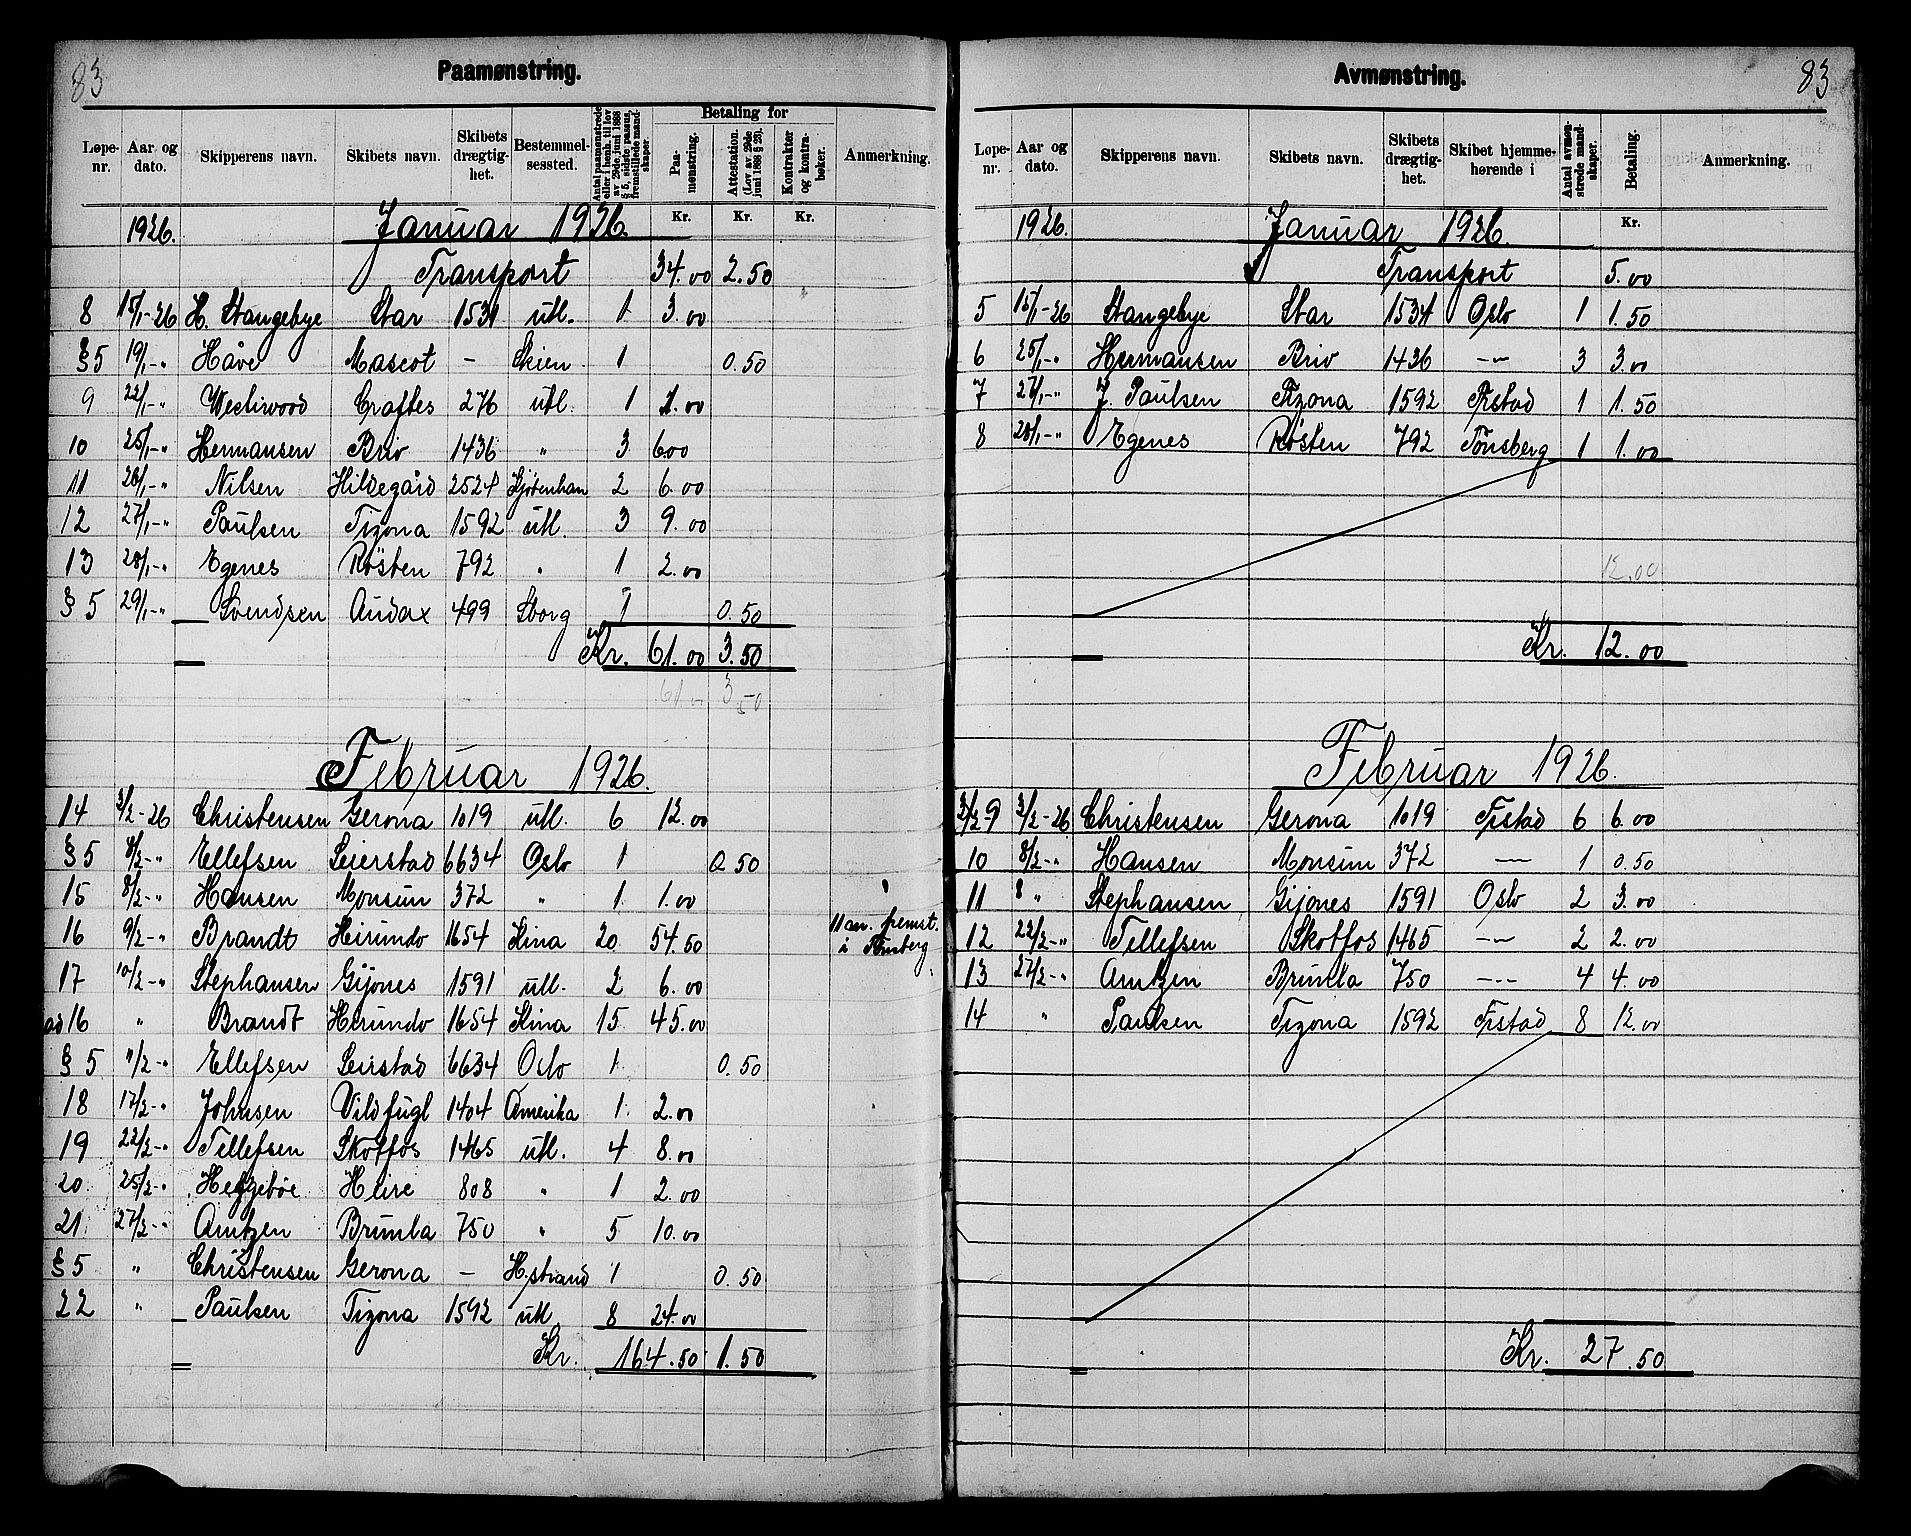 83
Paamønstring.
Løpe-nr. Aar og dato. Skipperens navn. Skibets navn. Skibets drægtig-het. Bestemmel-sessted. Antal paamønstrede eller i henh. til lov av 29de juni 1888 § 5, sidste passus, fremstillede mand-skaper. Betaling for Paa-mønstring. Attestation. (Lov av 29de juni 1888 § 23). Kontrakter og kontra-bøker. Anmerkning.
Kr. Kr. Kr.
1926. Januar 1926.
Transport 34.00 2.50
8 15/1-26 H. Stangebye Star 1531 utl. 1 3.00
§5 19/1-" Håve Mascot — Skien 1 0.50
9 22/1-" Westwood Craftes 276 utl. 1 1.00
10 25/1-" Hermansen Brio 1436 " 3 600
11 26/1-" Nilsen Hildegård 2524 Kjøbenhan 2 6.00
12 27/1-" Paulsen Tizona 1592 utl. 3 9.00
13 28/1-" Egenes Røsten 792 " 1 2.00
§5 29/1-" Svendsen Audax 499 Sborg 1 0.50
Kr. 61.00 3.50
61.00 3.50
Februar 1926.
14 3/2-26 Christensen Gerona 1019 utl. 6 12.00
§5 8/2-" Ellefsen Leierstad 6634 Oslo 1 0.50
15 8/2-" Hansen Monsun 372 " 1 1.00
16 9/2-" Brandt Heirundo 1654 Kina 20 54.50 11 an. fremst. i Tønsberg.
17 10/2-" Stephansen Gijones 1591 utl. 2 6.00
ad 16 " Brandt Hirundo 1654 Kina 15 45.00
§5 11/2-" Ellefsen Leirstad 6634 Oslo 1 0.50
18 17/2-" Johnsen Vildfugl 1404 Amerika 1 2.00
19 22/2-" Tellefsen Skotfos 1465 utl. 4 8.00
20 25/2-" Heggebøe Heire 808 " 1 2.00
21 27/2-" Arntzen Brunla 750 " 5 10.00
§5 " Christensen Gerona — H.strand 1 0.50
22 " Paulsen Tizona 1592 utl 8 24.00
Kr. 164.50 1.50
83
Avmønstring.
Løpe-nr. Aar og dato. Skipperens navn. Skibets navn. Skibets drægtig-het. Skibet hjemme-hørende i Antal avmøn-strede mand-skaper. Betaling. Anmerkning.
Kr.
1926. Januar 1926.
Transport 5.00
5 15/1-26 Stangebye Star 1534 Oslo 1 1.50
6 25/1-" Hermansen Brio 1436 —"— 3 3.00
7 27/1-" J. Paulsen Tizona 1592 Frstad 1 1.50
8 28/1-" Egenes Røsten 792 Tønsberg 1 1.00
12.00
Kr. 12.00
Februar 1926.
3/2 9 3/2-26 Christensen Gerona 1019 Frstad 6 6.00
10 8/2-" Hansen Monsun 372 —"— 1 0.50
11 8 " Stephansen Gijones 1591 Oslo 2 3.00
12 22/2-" Tellefsen Skotfos 1465 —"— 2 2.00
13 27/2-" Arntzen Brunla 750 —"— 4 4.00
14 " Paulsen Tizona 1592 Frstad 8 12.00
Kr. 27.50